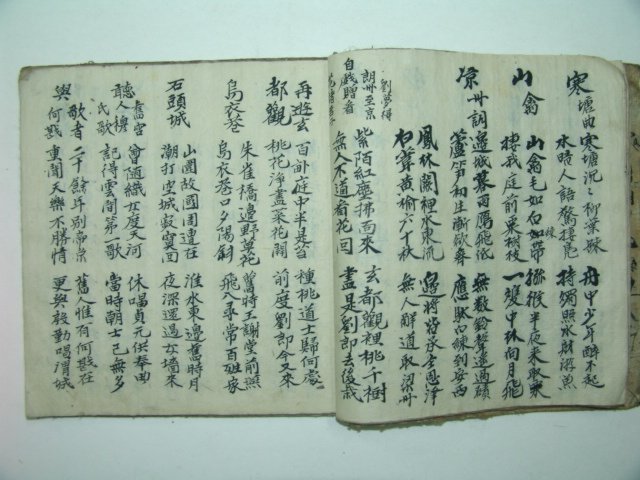 寒塘曲 寒塘沉〻柳葉疎 舟中少年醉不起
水暗人語驚棲鳧 持燭照水射游魚
山禽 山禽毛如白如帶 獼猴半夜來取栗
練
棲我庭前栗樹枝 一雙中林向月飛
凉州詞 邊城暮雨鴈飛低 無數鈴聲遙過磧
蘆笋初生漸欲齊 應馱白練到安西
鳳林關裡水東流 邊將皆承主恩澤
白草黃榆六十秋 無人解道取凉州
劉夢得
朗州至京
自戲贈看
花諸君子
紫陌紅塵拂面來 玄都觀裡桃千樹
無人不道看花回 盡是劉郎去後栽
再遊玄 百畝庭中半是苔 種桃道士歸何處
都觀 桃花淨盡菜花開 前度劉郎今又來
烏衣巷 朱雀橋邊野草花 舊時王謝堂前燕
烏衣巷口夕陽斜 飛入尋常百姓家
石頭城 山圍故國周遭在 淮水東邊舊時月
潮打空城寂寞回 夜深還過女墻來
聽舊宮人穆氏歌 曾隨織女度天河 休唱貞元供奉曲
記得雲間第一歌 當時朝士已無多
與歌者何戡 二十餘年別帝京 舊人惟有何戡在
重聞天樂不勝情 更與殷勤唱渭城